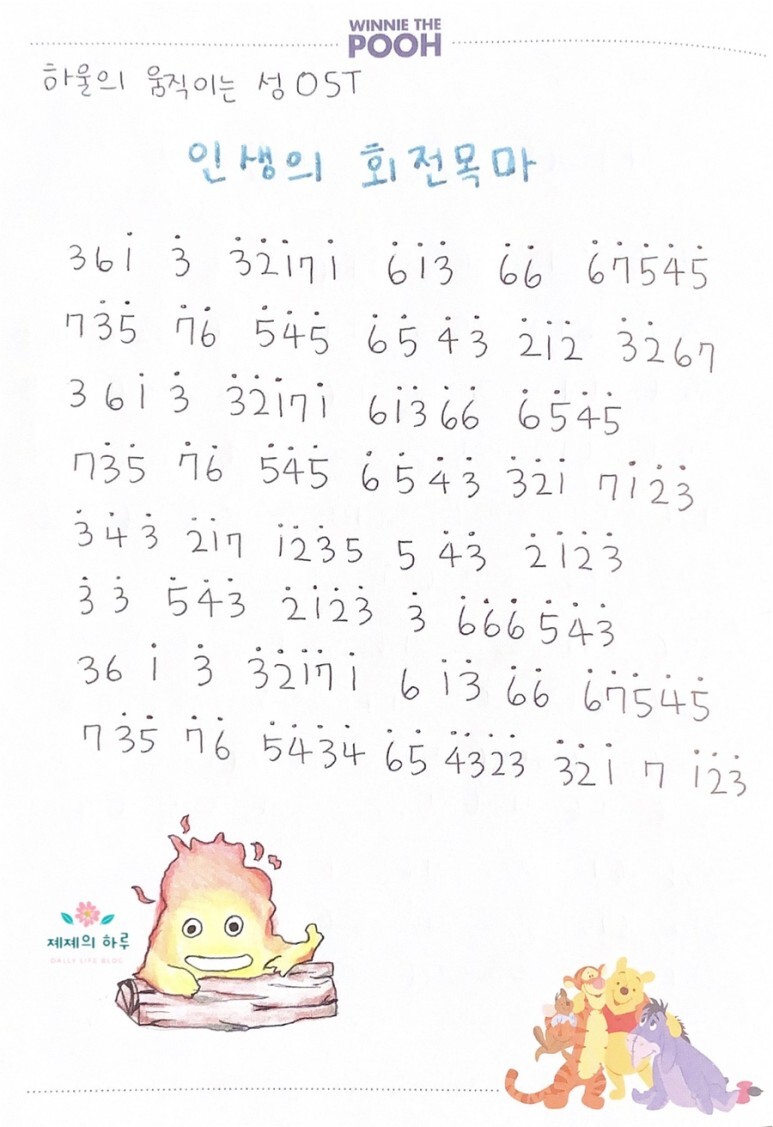 WINNIE THE
POOH
하울의 움직이는 성 OST
인생의 회전목마
3 6 i̇ 3̇ 3̇2̇i̇7i̇ 6̇i̇3̇ 6̇6̇ 6̇7̇5̇4̇5̇
73̇5̇ 7̇6̇ 5̇4̇5̇ 6̇5̇ 4̇3̇ 2̇i̇2̇ 3̇2̇67
3 6 i̇ 3̇ 3̇2̇i̇7i̇ 6i̇3̇6̇6̇ 6̇5̇4̇5̇
73̇5̇ 7̇6̇ 5̇4̇5̇ 6̇ 5̇ 4̇ 3̇ 3̇2̇i̇ 7i̇2̇3̇
3̇ 4̇ 3̇ 2̇i̇7 i̇2̇3̇5 5 4̇3̇ 2̇i̇2̇3̇
3̇ 3̇ 5̇4̇3̇ 2̇i̇2̇3̇ 3̇ 6̇6̇6̇5̇4̇3̇
36 i̇ 3̇ 3̇2̇i̇7i̇ 6 i̇3̇ 6̇6̇ 6̇7̇5̇4̇5̇
7 3̇5̇ 7̇6̇ 5̇4̇3̇4̇ 6̇5̇ 4̇3̇2̇3̇ 3̇2̇i̇ 7 i̇2̇3̇
제제의 하루
DAILY LIFE BLOG